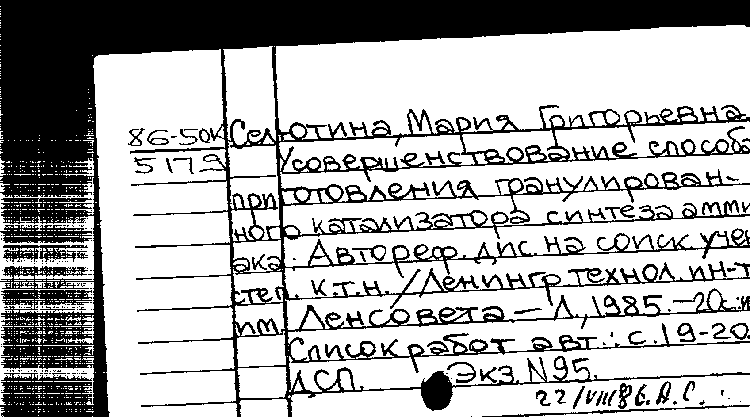 86-50к Селютина, Мария Григорьевна
5179 Усовершенствование способа
приготовления гранулирован-
ного катализатора синтеза амми
ака: Автореф. дис. на соиск. учен
степ. к.т.н. / Ленингр. технол. ин-т
им. Ленсовета. – Л., 1985. – 20с.:и
Список работ авт.: с. 19-20
ДСП. Экз. N95.
22/VIII86.